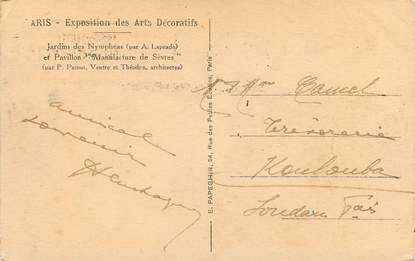 ARIS - Exposition des Arts Décoratifs
Jardins des Nymphéas (par A. Laprade)
et Pavillon "Manufacture de Sèvres"
(par P. Patout, Ventre et Théodon, architectes)
amical
souvenir
E. PAPEGHIN, 34, Rue des Petites Écuries, Paris
Camel
Trésorerie
Koulouba
Soudan Fçais